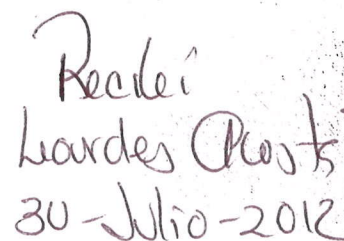 Recibí
Lourdes Acosta
30-Julio-2012